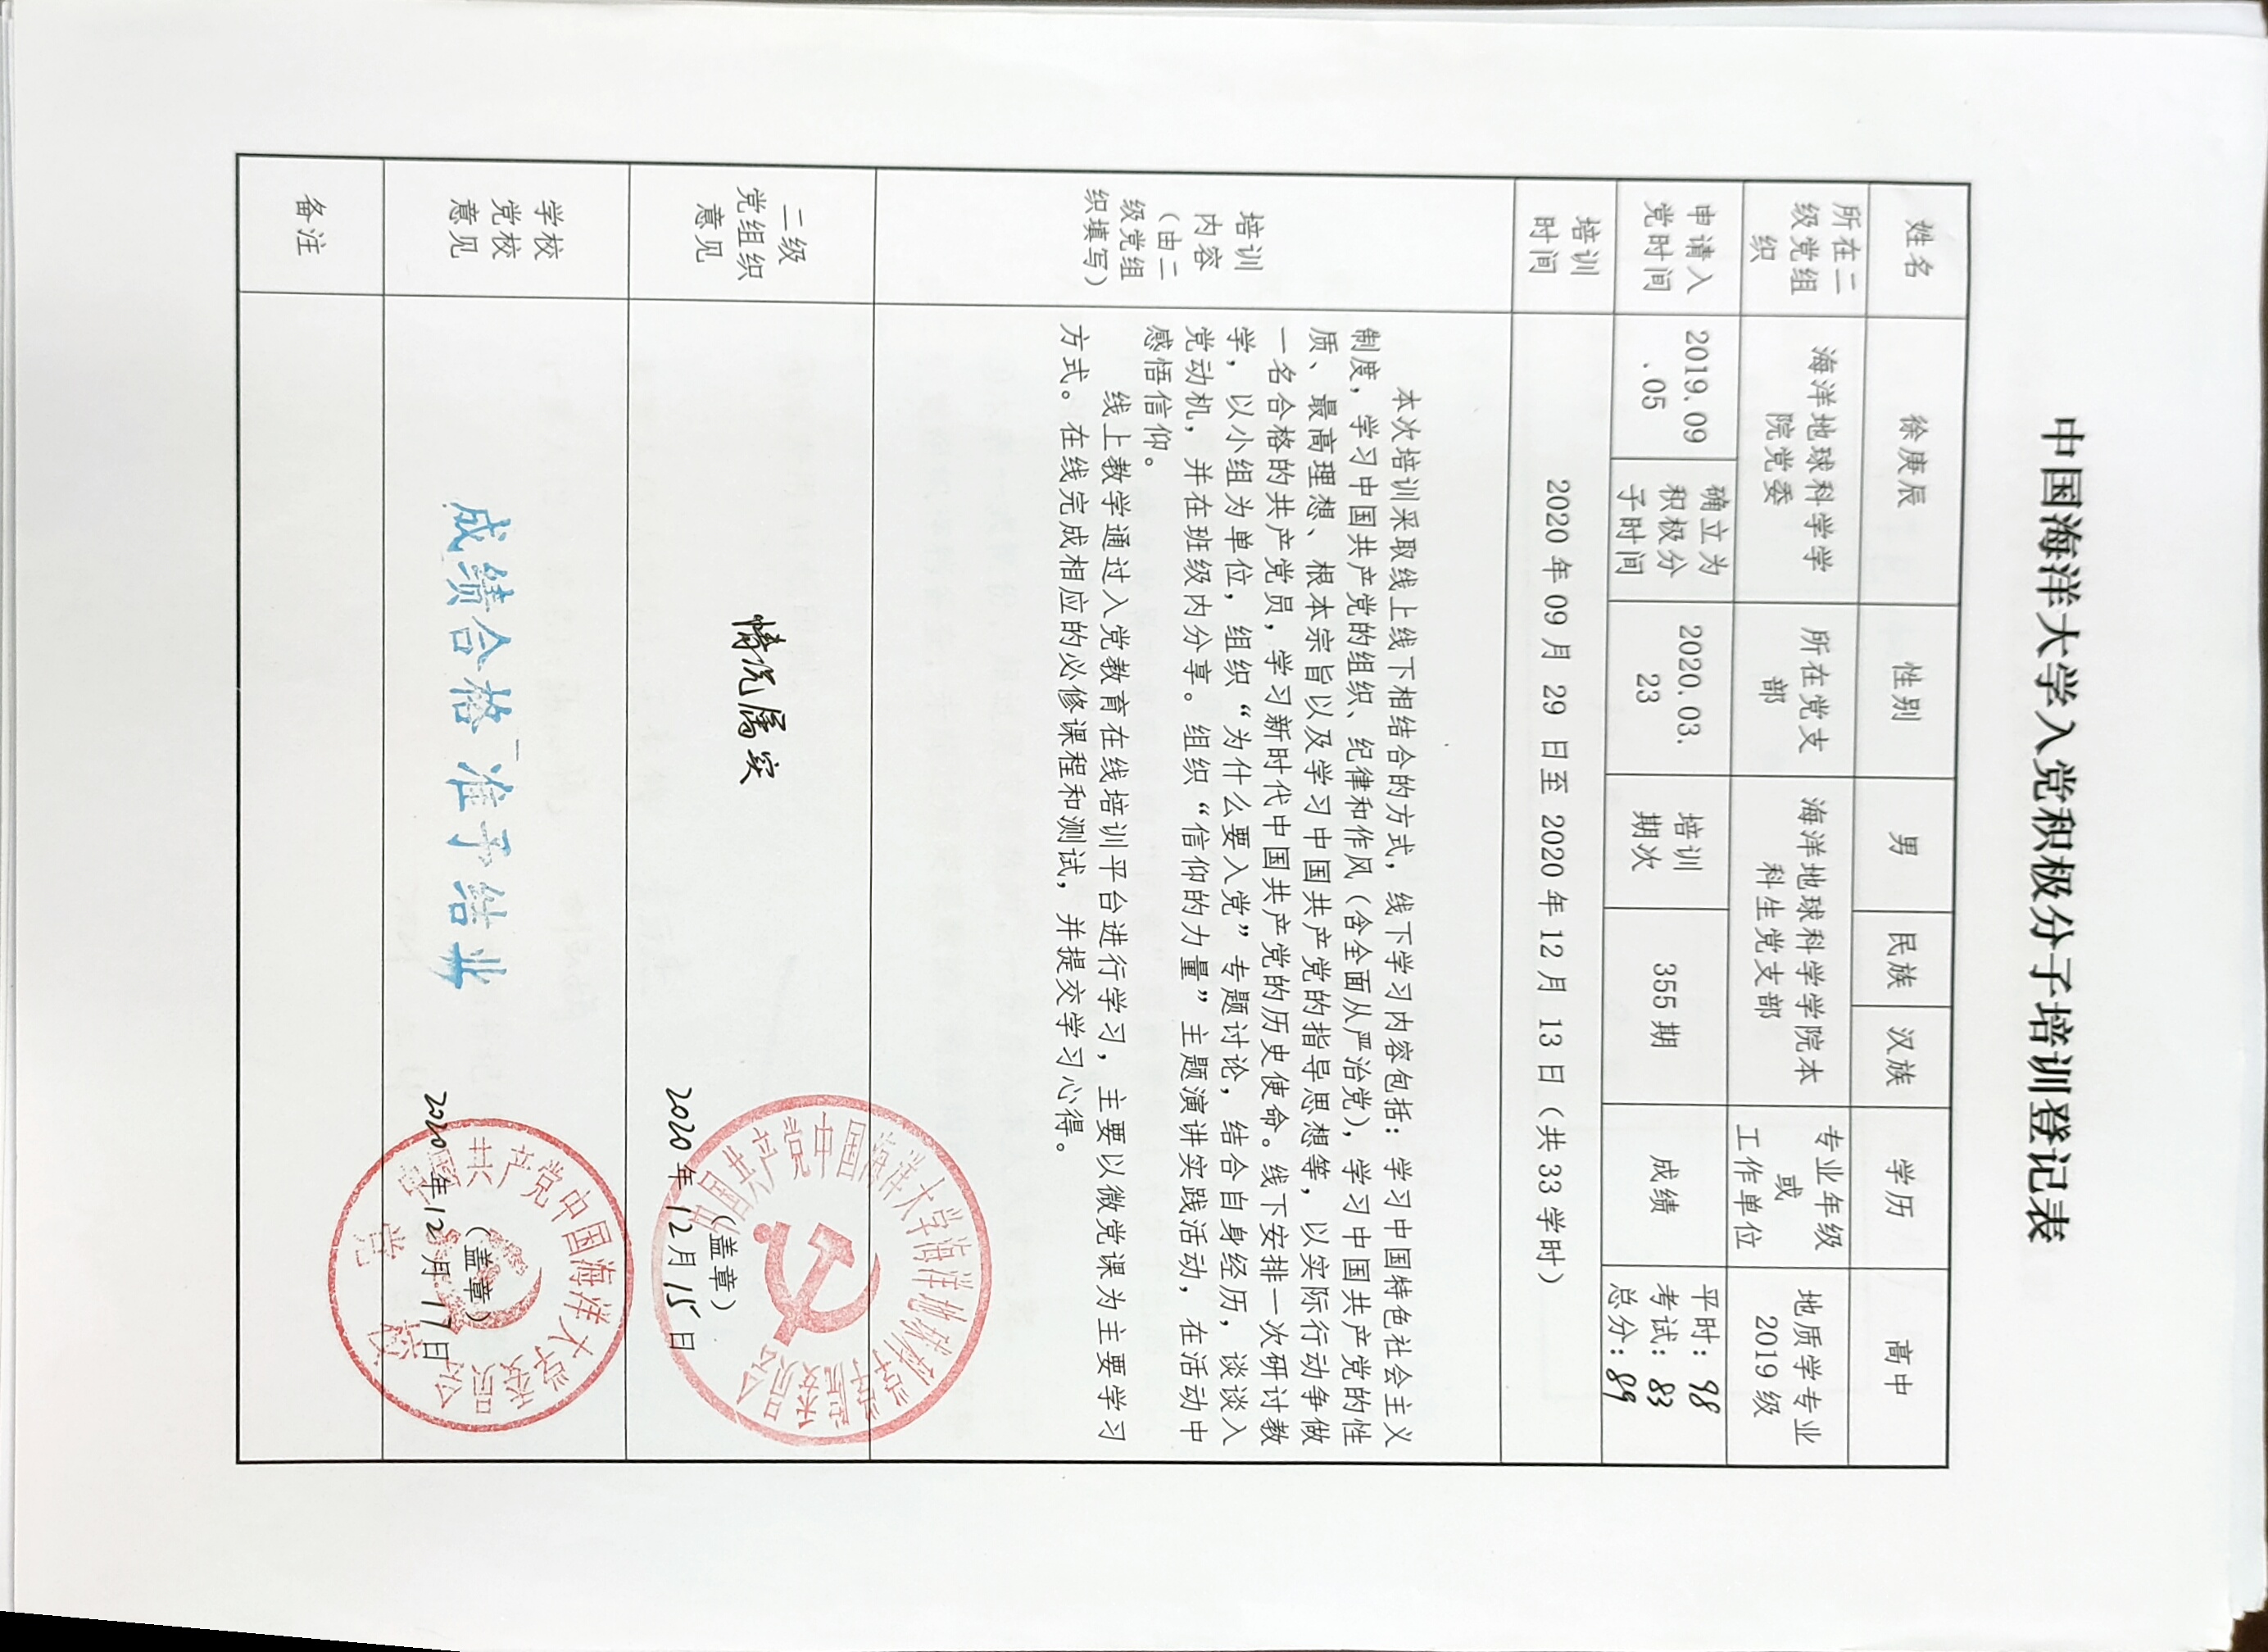 中国海洋大学入党积极分子培训登记表
姓名
徐庚辰
性别
男
民族
汉族
学历
高中
所在二
级党组
织
海洋地球科学学
院党委
所在党支
部
海洋地球科学学院本
科生党支部
专业年级
或
工作单位
地质学专业
2019级
申请入
党时间
2019.09
.05
确立为
积极分
子时间
2020.03.
23
培训
期次
355期
成绩
平时：98
考试：83
总分：89
培训
时间
2020年09月 29 日至 2020年12月 13日（共33学时）
培训
内容
（由二
级党组
织填写）
本次培训采取线上线下相结合的方式，线下学习内容包括：学习中国特色社会主义
制度，学习中国共产党的组织、纪律和作风（含全面从严治党），学习中国共产党的性
质、最高理想、根本宗旨以及学习中国共产党的指导思想等，以实际行动争做
一名合格的共产党员，学习新时代中国共产党的历史使命。线下安排一次研讨教
学，以小组为单位，组织“为什么要入党”专题讨论，结合自身经历，谈谈入
党动机，并在班级内分享。组织“信仰的力量”主题演讲实践活动，在活动中
感悟信仰。
线上教学通过入党教育在线培训平台进行学习，主要以微党课为主要学习
方式。在线完成相应的必修课程和测试，并提交学习心得。
二级
党组织
意见
情况属实
中国共产党中国海洋大学海洋地球科学学院委员会
（盖章）
2020年12月15日
学校
党校
意见
成绩合格 准予结业
中国共产党中国海洋大学委员会
党校
（盖章）
2020年12月17日
备注